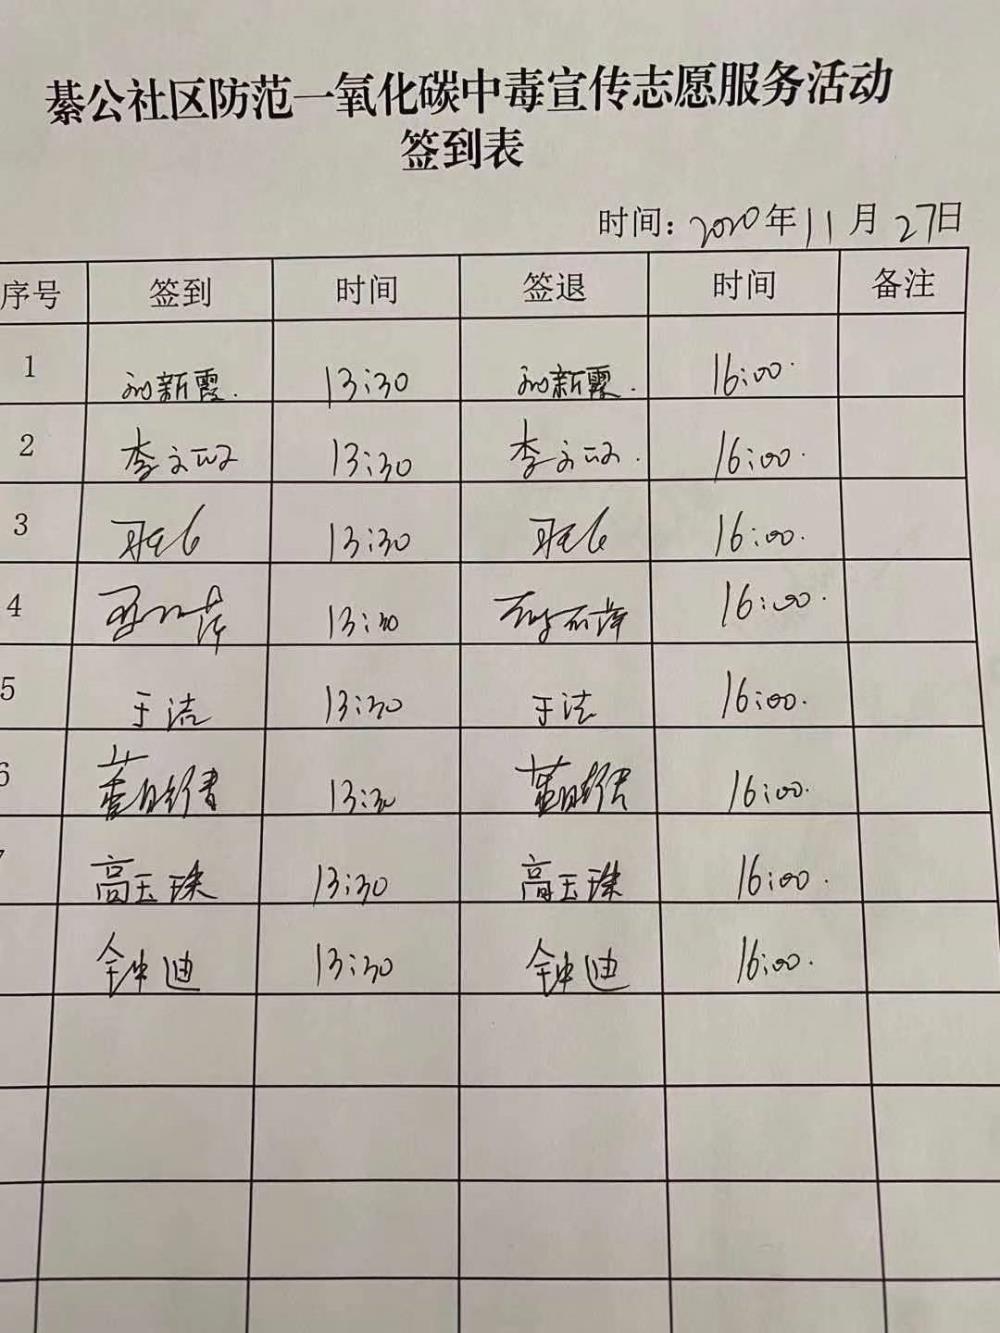 綦公社区防范一氧化碳中毒宣传志愿服务活动
签到表
时间：2020年11月27日
序号 签到 时间 签退 时间 备注
1 刘新霞. 13:30 刘新霞. 16:00.
2 李文 13:30 李文 16:00.
3 13:30 16:00.
4 13:30 萍 16:00.
5 于洁 13:30 于洁 16:00.
6 13:30 16:00.
7 高玉珠 13:30 高玉珠 16:00.
钟迪 13:30 钟迪 16:00.